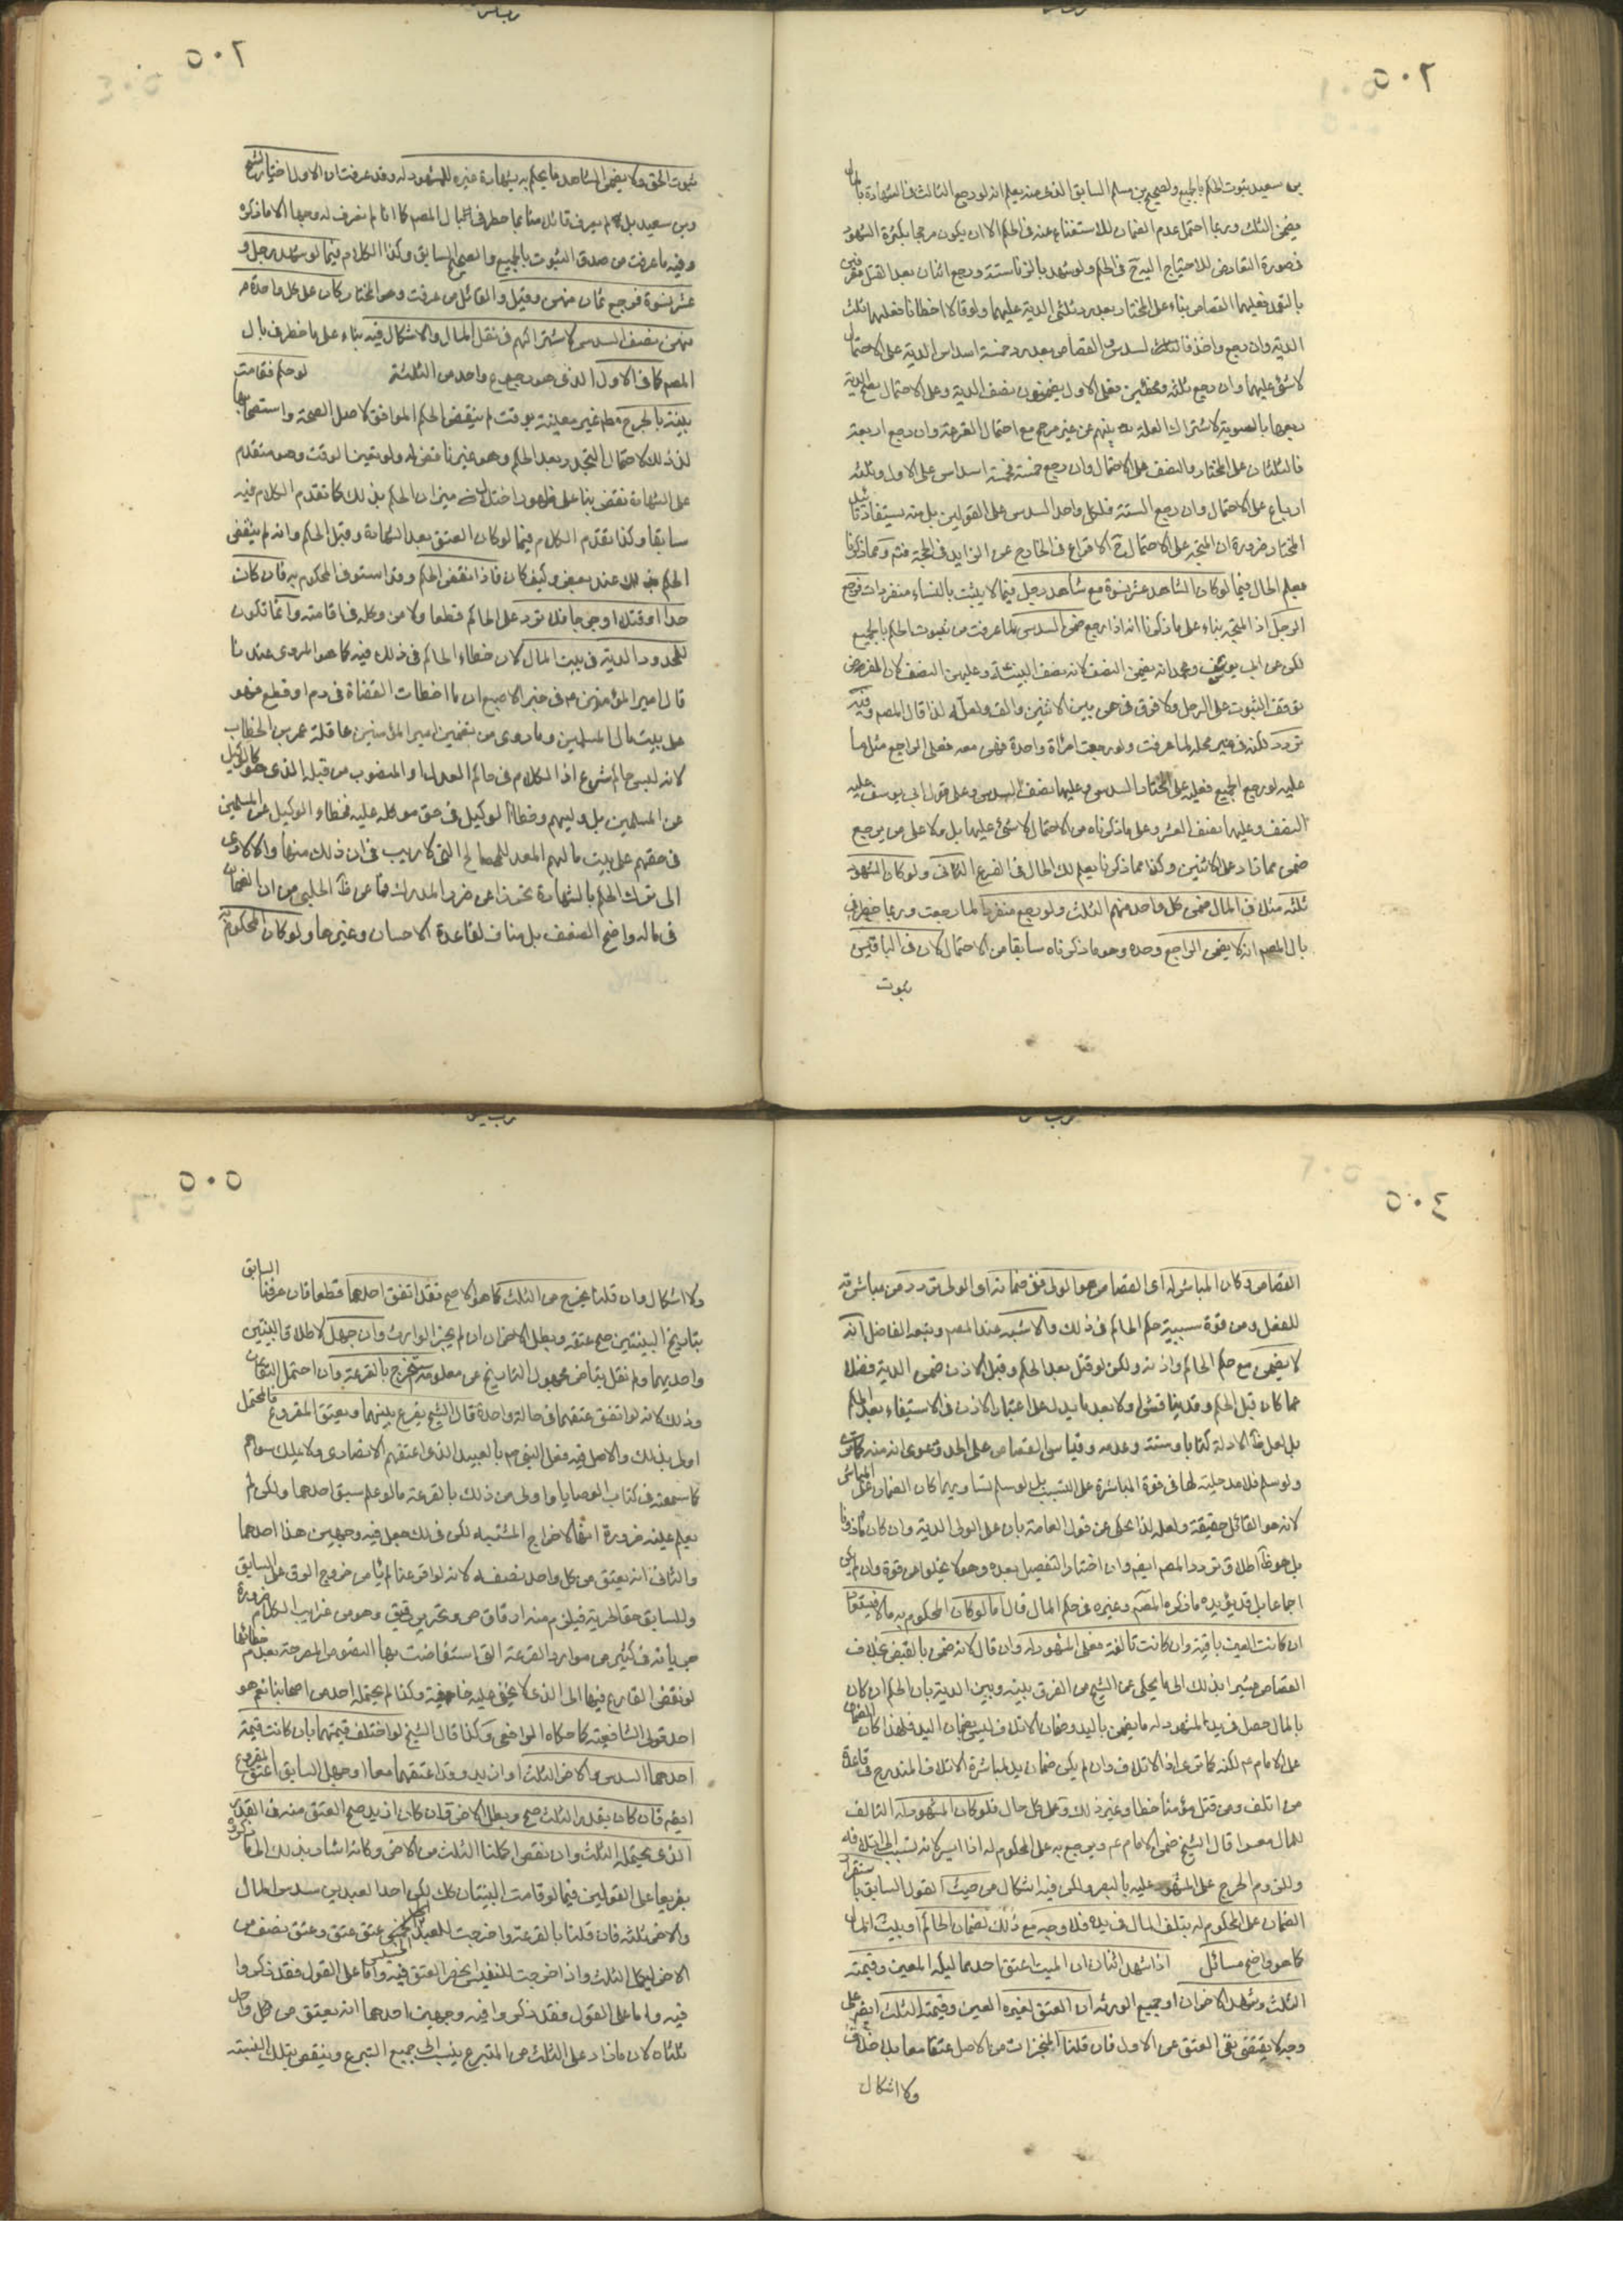 ٥٠٢
بن سعيد ثبوت الحكم بالجميع ولصحيح بن مسلم السابق الذى منه يعلم انه لو رجع الثالث فى الشهادة بالمال
يضمن الثلث وربما احتمل عدم الضمان للاستغناء عنه فى الحكم الا ان يكون مرجحا بكثرة الشهود
فى صورة التعارض للاحتياج اليه ح فى الحكم ولو شهد بالزنا ستة ورجع اثنان بعد القتل معترفين
بالتعمد فعليهما القصاص بناء على المختار بعد رد ثلثى الدية عليهما ولو قالا اخطانا فعليهما ثلث
الدية وان رجع واحد فالسدس او القصاص بعد رد خمسة اسداس الدية وعلى الاحتمال
لا شئ عليهما وان رجع ثلثة مخطئين فعلى الاول يضمنون نصف الدية وعلى الاحتمال ربع الدية
ربعها بالسوية لاشتراك العلة بينهم من غير مرجح مع احتمال القرعة وان رجع اربعة
فالثلثان على المختار والنصف على الاحتمال وان رجع خمسة فخمسة اسداس على الاول وثلثة
ارباع على الاحتمال وان رجع الستة فلكل واحد السدس على القولين بل منه يستفاد
المختار ضرورة ان المتجه على الاحتمال ح الاقراع فى الخارج عن الزايد فى الحجة فتم ومما ذكرنا
يعلم الحال فيما لو كان الشاهد عشر نسوة مع شاهد رجل فيما لا يثبت بالنساء منفردات فرجع
الرجل اذ المتجه بناء على ما ذكرنا انه اذا رجع ضمن السدس لما عرفت من ثبوت الحكم بالجميع
لكن عن ابى يوسف ومحمد انه يضمن النصف لانه نصف البينة وعليهن النصف لان المفروض
توقف الثبوت على الرجل ولا فرق فى هن بين الاثنين والف ولعله لذا قال المصم وفيه
تردد لكنه فى غير محله لما عرفت ولو رجعت امراة واحدة فهى معه فعلى الراجع مثل ما
عليه لو رجع الجميع فعليه على المختار السدس وعليها نصف السدس وعلى قول ابى يوسف عليه
النصف وعليها نصف العشر وعلى ما ذكرناه من الاحتمال لا شئ عليها بل ولا على من يرجع
ضمن مما زاد على الاثنين وكذا مما ذكرنا يعلم لك الحال فى الفرع الثانى ولو كان الشهود
ثلثة مثلا فى المال ضمن كل واحد منهم الثلث ولو رجع منفردا لما رجعت وربما خطر فى
بال المصم انه لا يضمن الراجع وحده وهو ما ذكرناه سابقا من الاحتمال لان فى الباقين
ثبوت
٥٠٣
ثبوت الحق ولا يضمن الشاهد ما يحكم به بشهادة غيره للمشهود له وقد عرفت ان الاول اختيار الشيخ
وبن سعيد بل لم يعرف قائل منا بما خطر فى البال المصم كما انا لم نعرف له وجها الا ما ذكر
وفيه ما عرفت من صدق الثبوت بالجميع والصحيح السابق وكذا الكلام فيما لو شهد رجل و
عشر نسوة فرجع ثمان منهن وقيل والقائل من عرفت وهو المختار كان على كل واحدة
منهن نصف السدس لاشتراكهم فى نقل المال والاشكال فيه بناء على ما خطر فى بال
المصم كما فى الاول الذى هو رجوع واحد من الثلثة لو حكم فقامت
بينة بالجرح مطم غير معينة بوقت لم ينقض الحكم الموافق لاصل الصحة واستصحابها
لذلك لاحتمال التجدد بعد الحكم وهو غير ناقض له ولو تعين الوقت وهو متقدم
على الشهادة نقض بنا على ظهور اختلال ميزان الحكم بذلك كما تقدم الكلام فيه
سابقا وكذا تقدم الكلام فيما لو كان العتق بعد الشهادة وقبل الحكم وانه لم ينقض
الحكم عند بعض وكيف كان فاذا نقض الحكم وقد استوفى المحكوم به فان كان
حدا او قتلا او جرحا فلا قود على الحاكم قطعا ولا من وكله فى اقامته وانما تكون
للمحدود الدية فى بيت المال لان خطاء الحاكم فى ذلك فيه كما هو المروى عندنا
قال امير المؤمنين ع فى خبر الاصبغ ان ما اخطات القضاة فى دم او قطع فهو
على بيت مال المسلمين وما روى من تضمين امير المؤمنين عاقلة عمر بن الخطاب
لانه ليس حاكم شرع اذ الكلام فى حاكم العدل او المنصوب من قبله الذى هو كالوكيل
عن المسلمين بل وليهم وخطأ الوكيل فى حق موكله عليه فخطاء الوكيل عن المسلمين
فى حقهم على بيت مالهم المعد للمصالح التى لا ريب فى ان ذلك منها والا لادى
الى ترك الحكم بالشهادة تحرزا عن ضرر الدرك فما عن الحلبى من ان الضمان
فى ماله واضح الضعف بل مناف لقاعدة الاحسان وغيرها ولو كان المحكوم به
٥٠٤
القصاص وكان المباشر له اى القصاص هو الولى ففى ضمانه اى الولى تردد من مباشرته
للفعل ومن قوة سببية حكم الحاكم فى ذلك والاشبه عند المصم وتبعه الفاضل انه
لا يضمن مع حكم الحاكم واذنه ولكن لو قتل بعد الحكم وقبل الاذن ضمن الدية فضلا
عما كان قبل الحكم وقد ينافش اولا بعدم ما يدل على اعتبار الاذن فى الاستيفاء بعد الحكم
بل لعل ظ الادلة كتابا وسنة وعدمه وقياس القصاص على الحد ودعوى انه منه كما ترى
ولو سلم فلا مدخلية لها فى قوة المباشرة على التسبيب بل لو سلم تساويهما كان الضمان على المباشر
لانه هو القاتل حقيقة ولعله لذا يحكى عن قول العامة بان على الولى الدية وان كان ماذونا
بل هو ظ اطلاق تردد المصم ايضم وان اختار التفصيل بعده وهو لا يخلو عن قوة وان لم يكن
اجماعا بل قد يؤيده ما ذكره المصم وغيره فى حكم المال قال اما لو كان المحكوم به مالا فيستعاد
ان كانت العين باقية وان كانت تالفة فعلى المشهود له وان قال لانه ضمن بالقبض بخلاف
القصاص مشيرا بذلك الى ما يحكى عن الشيخ من الفرق بينه وبين الدية بان الحكم ان كان
بالمال حصل فى يد المشهود له ما يضمن باليد وضمان الاتلاف ليس بضمان اليد فلهذا كان الضمان
على الامام ع لكنه كما ترى اذ الاتلاف وان لم يكن ضمان يد لمباشرة الاتلاف المندرج فى قاعدة
من اتلف ومن قتل مؤمنا خطا وغير ذلك وعلى كل حال فلو كان المشهود له التالف
للمال معسرا قال الشيخ ضمن الامام ع ويرجع به على المحكوم له اذا ايسر لانه تسبب الى اتلافه
وللزوم الحرج على المشهود عليه بالصبر ولكن فيه اشكال من حيث القول السابق باستقرار
الضمان على المحكوم له بتلف المال فى يده فلا وجه مع ذلك لضمان الحاكم او بيت المال
كما هو واضح مسائل اذا شهد اثنان ان الميت اعتق احد مماليكه المعين وقيمته
الثلث وشهد الاخران او جميع الورثه ان العتق لغيره المعين وقيمته الثلث ايضم على
وجه لا يقتضى نفى العتق عن الاول فان قلنا المنجزات من الاصل عتقا معا بلا خلاف
ولا اشكال
٥٠٥
ولا اشكال وان قلنا تخرج من الثلث كما هو الاصح فقد اتفق احدهما قطعا فان عرفنا السابق
بتاريخ البينتين صح عتقه وبطل الاخر ان لم يجز الوارث وان جهل لاطلاق البينتين
واحديهما ولم نقل بتاخر مجهول التاريخ عن معلومه استخرج بالقرعة وان احتمل التقارن
وذلك لانه لو اتفق عتقهما فى حالة واحدة قال الشيخ يقرع بينهما ويعتق المقروع فالمحتمل
اولى بذلك والاصل فيه فعل النبى ص بالعبيد الذى اعتقهم الانصارى ولا يملك سواهم
كما سمعته فى كتاب الوصايا واولى من ذلك بالقرعة ما لو علم سبق احدهما ولكن لم
يعلم عينه ضرورة انها لاخراج المشتبه لكن فى لك جعل فيه وجهين هذا احدهما
والثانى انه يعتق من كل واحد نصفه لانه لو اقرعنا لم يامن خروج الرق على السابق
وللسابق حق الحرية فيلزم منه ارقاق حر وتحرير رقيق وهو من غرايب الكلام ضرورة
جريانه فى كثير من موارد القرعة التى استفاضت بها النصوص المصرحة بعدم خطائها
لو نقض القارع فيها الى الذى لا يخفى عليه خافية وكذا لم يحتمله احد من اصحابنا نعم هو
احد قولى الشافعية كما حكاه الرافعى وكذا قال الشيخ لو اختلف قيمتهما بان كانت قيمة
احدهما السدس والاخر الثلث او ازيد وقد اعتقهما معا او جهل السابق اعتق المقروع
ايضم فان كان بقدر الثلث صح وبطل الاخر وان كان ازيد صح العتق منه فى القدر
الذى يحتمله الثلث وان نقص اكملنا الثلث من الاخر وكانه اشار بذلك الى ما ذكروه
تفريعا على القولين فيما لو قامت البينتان كك لكن احد العبدين سدس المال
والاخر ثلثه فان قلنا بالقرعة وخرجت للعبد الخسيس عتق عتق وعتق نصف من
الاخر ليكمل الثلث واذا خرجت للنفيس انحصر العتق فيه واما على القول فقد ذكروا
فيه واما على القول فقد ذكروا فيه وجهين احدهما انه يعتق من كل واحد
ثلثاه لان ما زاد على الثلث من المتبرع ينسب الى جميع التبرع وينقص بتلك النسبة